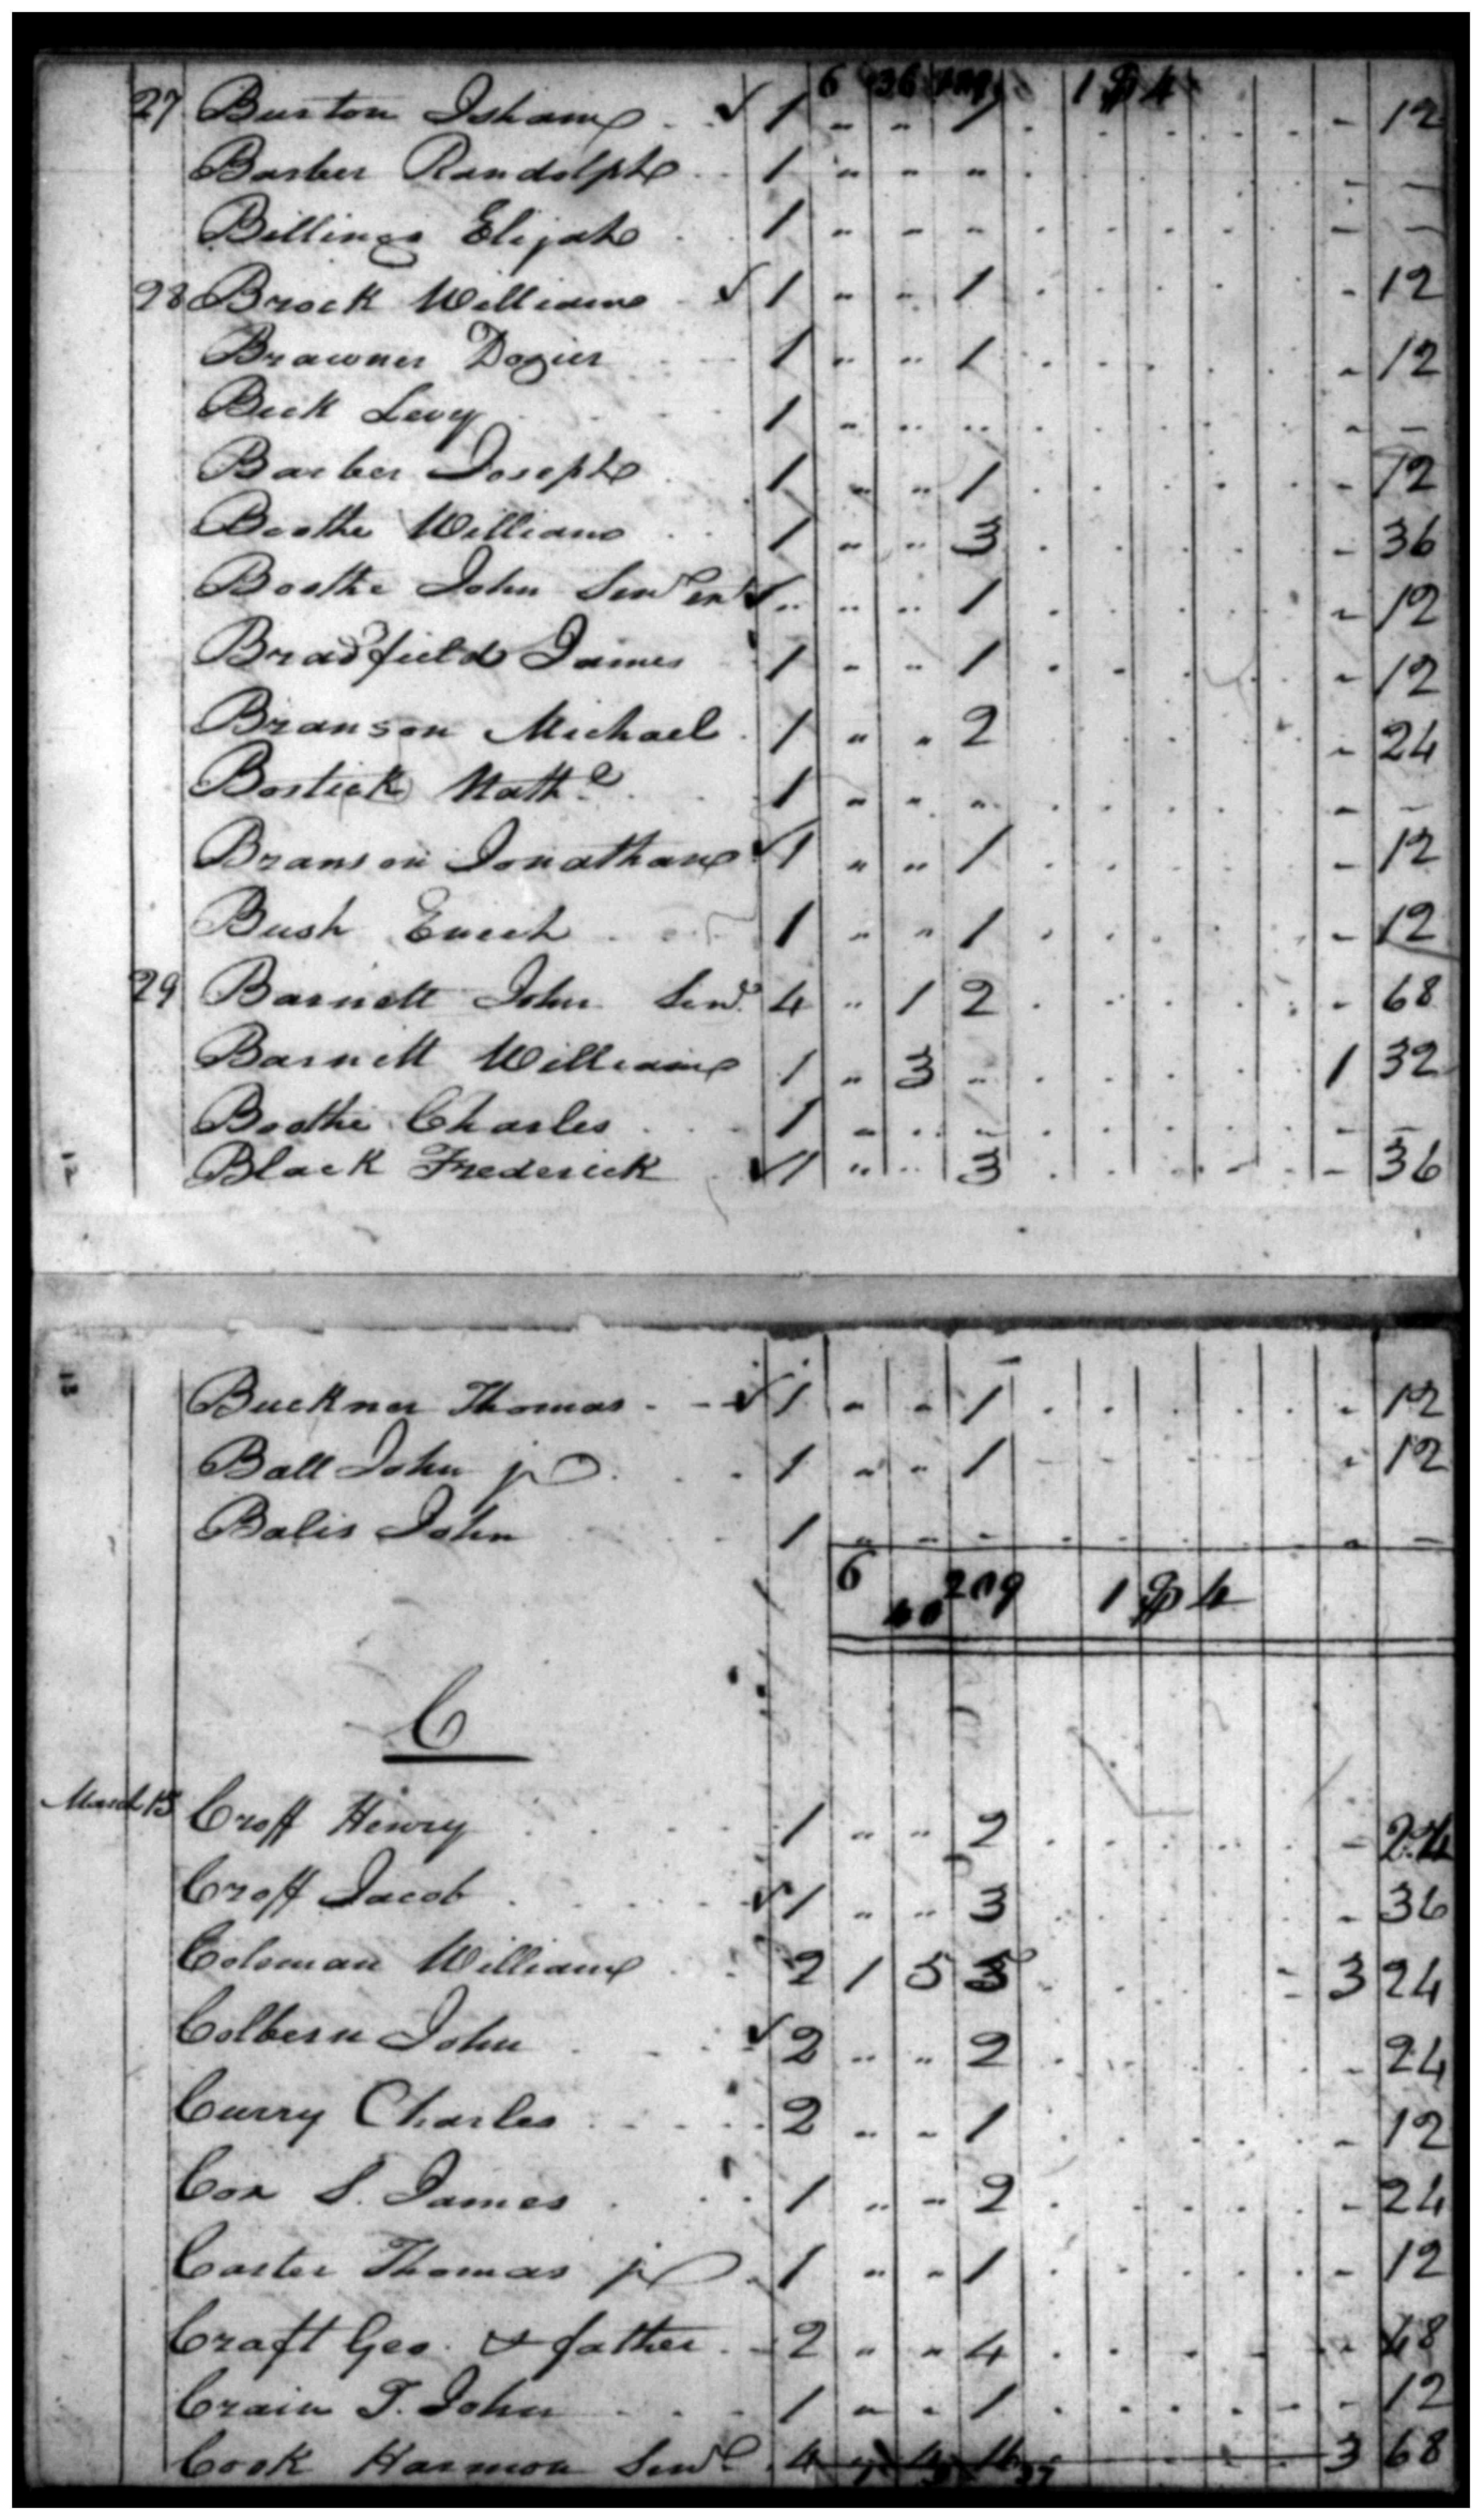 6 36 199 1 $ 4
27 Burton Isham √ 1 " " 1 - 12
Barber Randolph 1 " " " - -
Billings Elijah 1 " " " - -
28 Brock William √ 1 " " 1 - 12
Brawner Dozier 1 " " 1 - 12
Beck Levy 1 " " " - -
Barber Joseph 1 " " 1 - 12
Boothe William 1 " " 3 - 36
Boothe John Senr √ " " " 1 - 12
Bradfield James 1 " " 1 - 12
Branson Michael 1 " " 2 - 24
Bostick Nath 1 " " " - -
Branson Jonathan √ 1 " " 1 - 12
Bush Enoch 1 " " 1 - 12
29 Barnett John Senr 4 " 1 2 - 68
Barnett William 1 " 3 " 1 32
Boothe Charles 1 " " " - -
Black Frederick √ 1 " " 3 - 36
Buckner Thomas √ 1 " " 1 - 12
Ball John jr 1 " " 1 - 12
Balis John 1 " " " - -
6 40 209 1 $ 4
C
March 15 Croff Henry 1 " " 2 - 24
Croff Jacob √ 1 " " 3 - 36
Coleman William 2 1 5 5 3 24
Colbern John √ 2 " " 2 - 24
Curry Charles 2 " " 1 - 12
Cox S. James 1 " " 2 - 24
Carter Thomas jr 1 " " 1 - 12
Craft Geo. & father 2 " " 4 - 48
Crain T. John 1 " " 1 - 12
Cook Harmon Senr 4 3 68